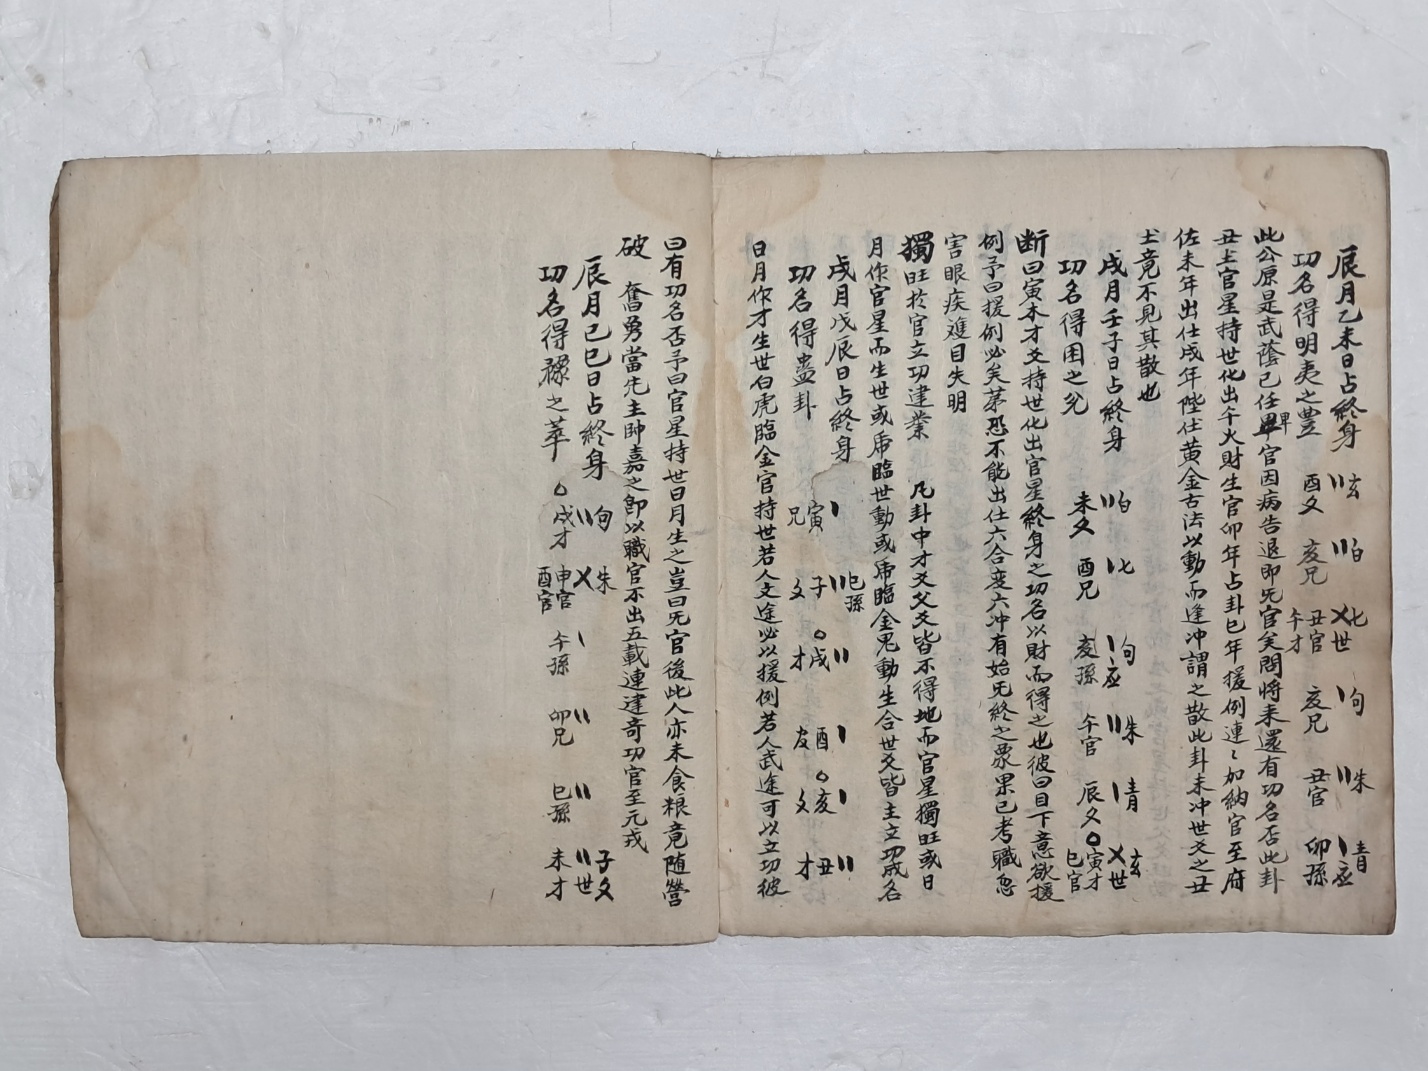 辰月乙未日占終身
玄〢 白〢 七乂世 勾〡 朱〢 青〡应
功名得明夷之豊 酉父 亥兄 丑官午才 亥兄 丑官 卯孫
此公原是武蔭已任畢官因病告退即旡官矣問將来還有功名否此卦
丑土官星持世化出午火財生官卯年占卦巳年援例連〻加納官至府
佐未年出仕戌年陞任黄金古法以動而逢冲謂之散此卦未冲世爻之丑
土竟不見其散也
戌月壬子日占終身
白〢 七〡 勾〡应 朱〢 青〡 玄乂世
功名得困之兌 未父 酉兄 亥孫 午官 辰父 〇寅才巳官
断曰寅木才爻持世化出官星終身之功名以財而得之也彼曰目下意欲援
例予曰援例必矣苐恐不能出仕六合变六冲有始旡終之象果已考職忽
害眼疾䨇目失明
獨旺於官立功建業 凡卦中才爻父爻皆不得地而官星獨旺或日
月作官星而生世或虎臨世動或虎臨金鬼動生合世爻皆主立功成名
戌月戊辰日占終身
功名得蠱卦 寅兄〡 子父〢巳孫 〇戌才〢 酉友〡 〇亥父〡 丑才〢
日月作才生世白虎臨金官持世若人文途必以援例若人武途可以立功彼
曰有功名否予曰官星持世日月生之豈曰旡官後此人亦未食粮竟随營
破 奮勇當先主帥嘉之即以職官不出五載連建奇功官至元戎
辰月已巳日占終身
勾〢 朱乂 〡 〢 〢 〢世子父
功名得 之萃 〇戌才 申官酉官 午孫 卯兄 巳孫 未才